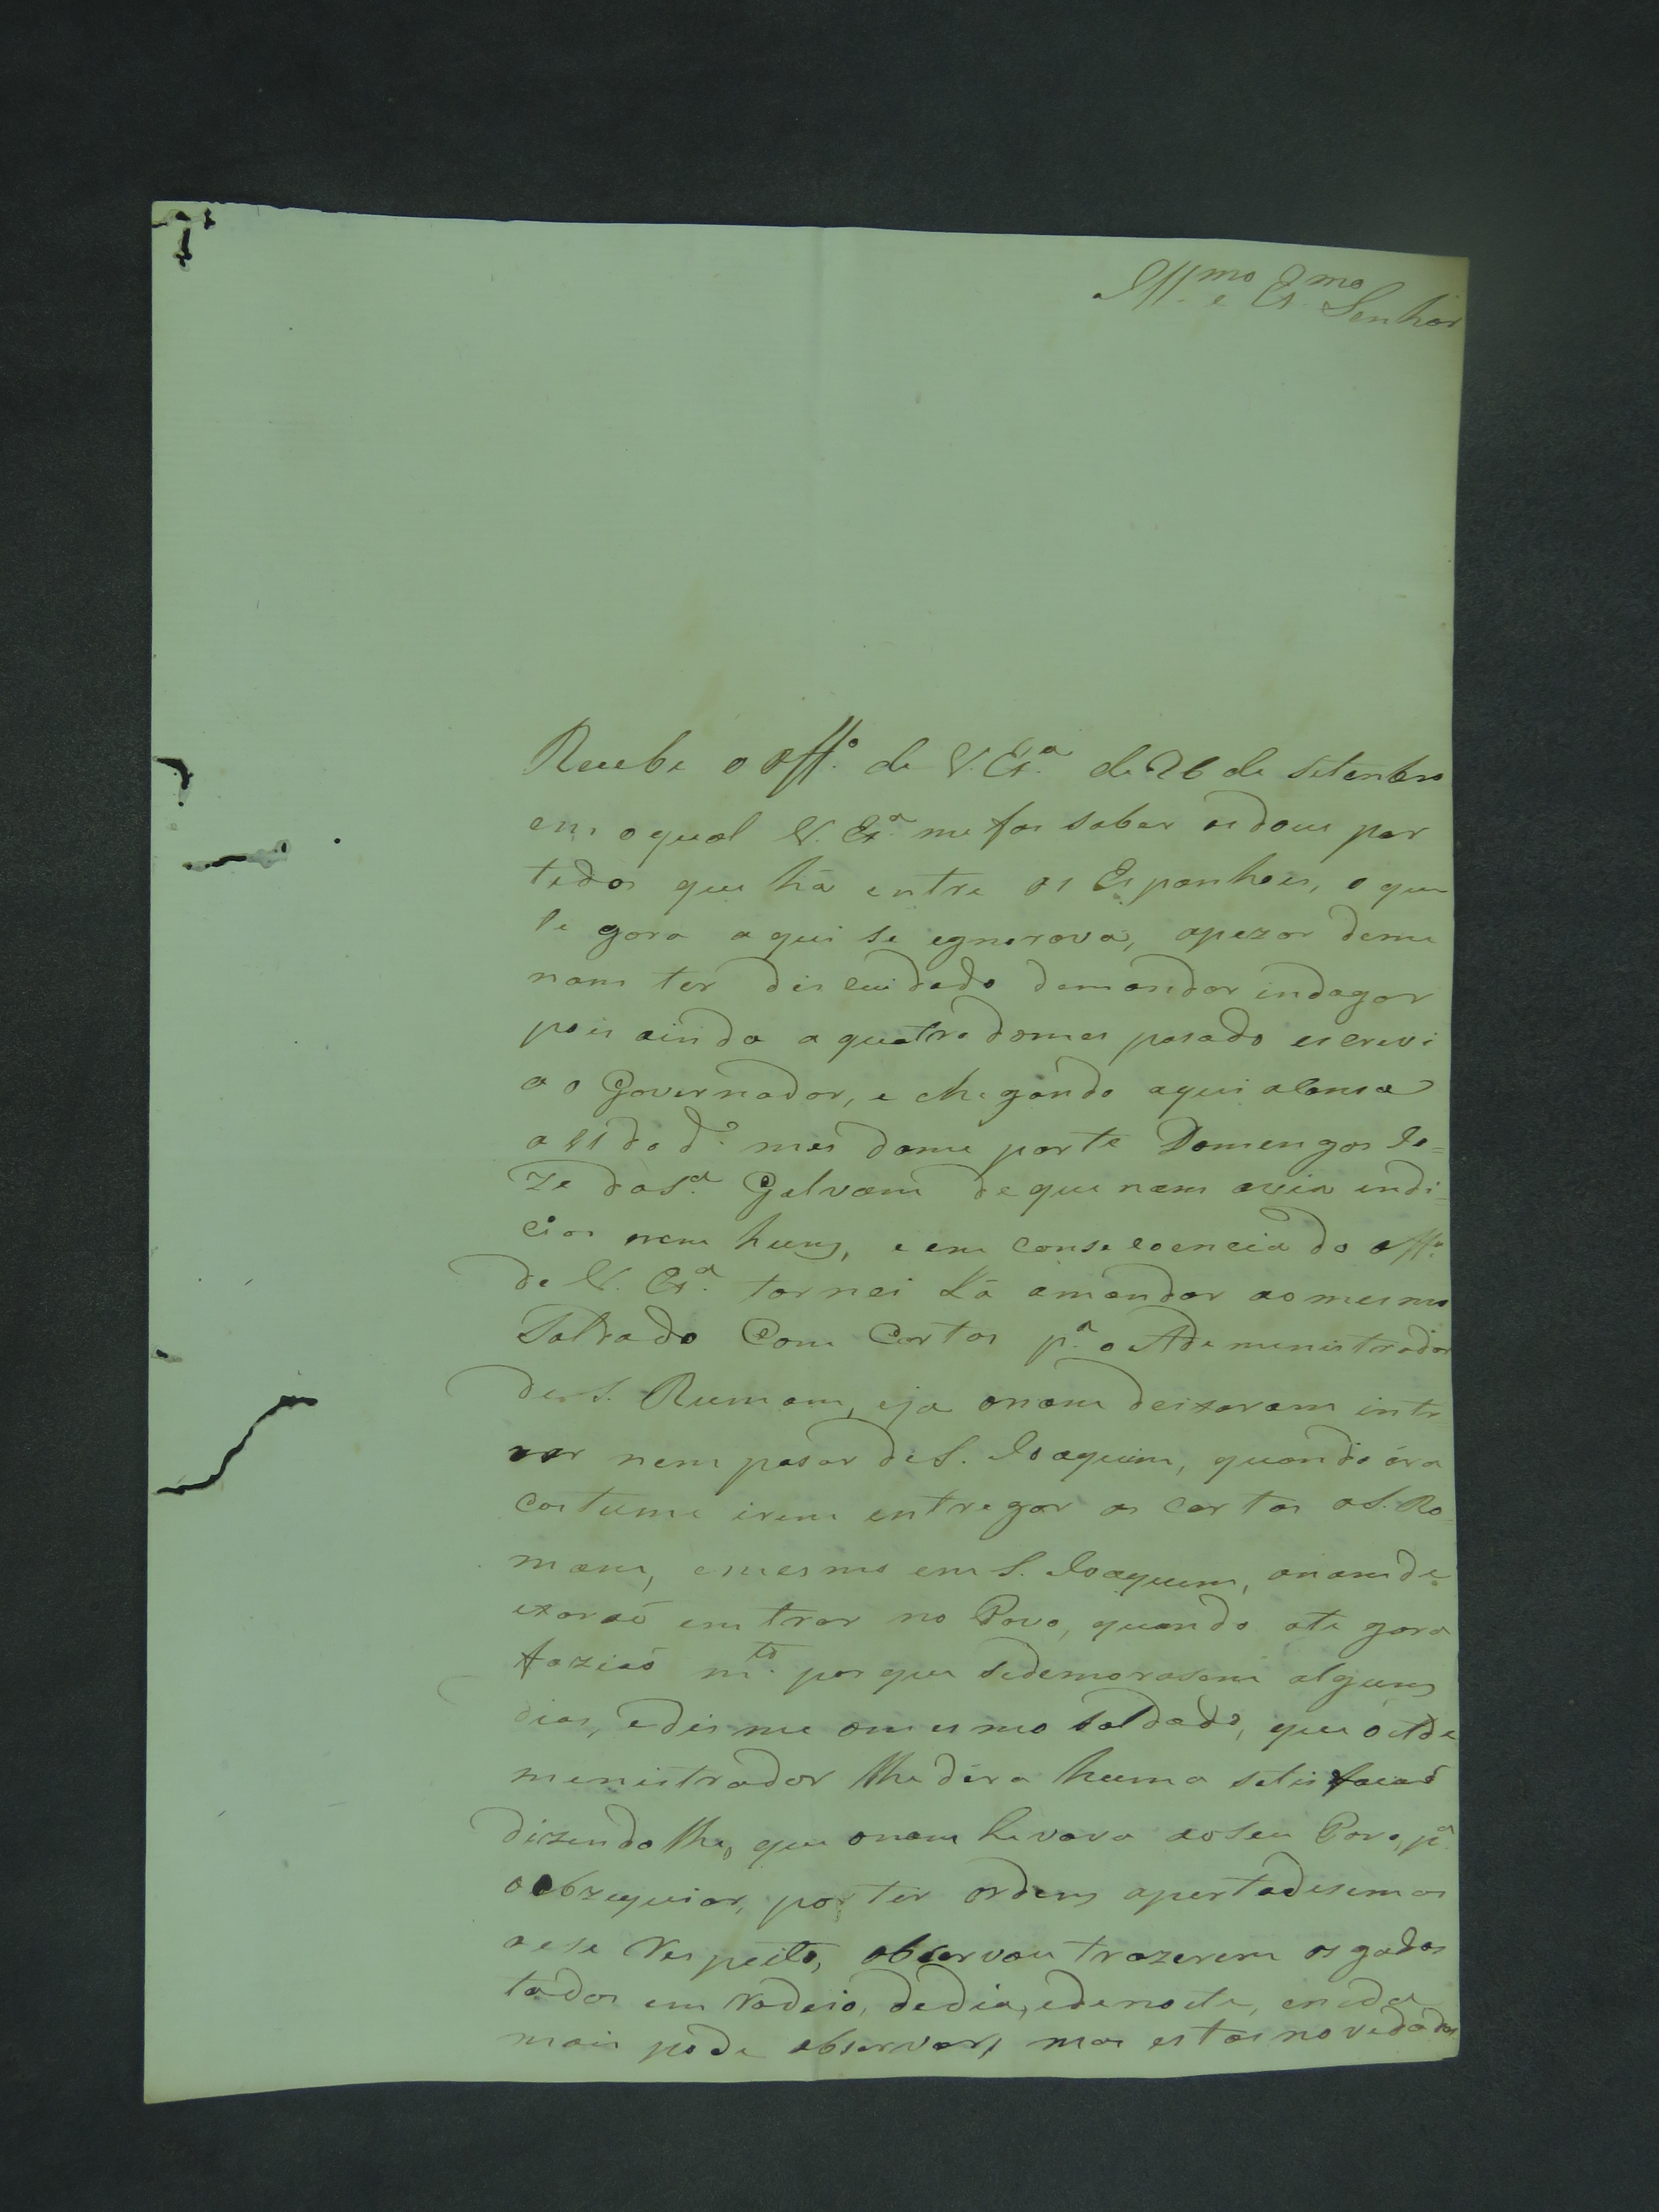 Illmo e Exmo Senhor
Recebe o Offº. de V. Exª. de 26 de Setenbro
em oqual V. Exª. me fas saber os dous par
tedos que há entre os Espanhoes, o que
te gora aqui se egnorava, apezar deme
nam ter descuidado demandar indagar
pois ainda a quatro domes pasado escrevi
ao Governador, e chegando aqui alansa
a 11 do dº. mes dame parte Domengos Jo=
ze dasª. Galvam de que nam avia indi=
cios nem huns, e em consecoencia do offº.
de V. Exª. tornei Lá amandar aomesmo
Soldado Com Cartas pª. o Ademenistrador
de S. Rumam, eja onam deixaram intr
rar nem pasar de S. Joaquim, quando éra
costume irem entregar as cartas a S. Ro=
mam, emesmo em S. Joaquim, onam de
exaraõ emtrar no Povo, quando ate gora
faziaõ mto. por que sedemorasem alguns
dias, edisme omesmo Soldado, que o Ade
menistrador lhe déra huma satisfacaõ
dizendolhe, que onam levava aoseu Povo, pª
oobzequiar, por ter ordens apertadesemas
aese Respeito, observou trazerem os gados
todos em Rodeio, dedia, edenoite, enada
mais pode observar, mas estas novedades